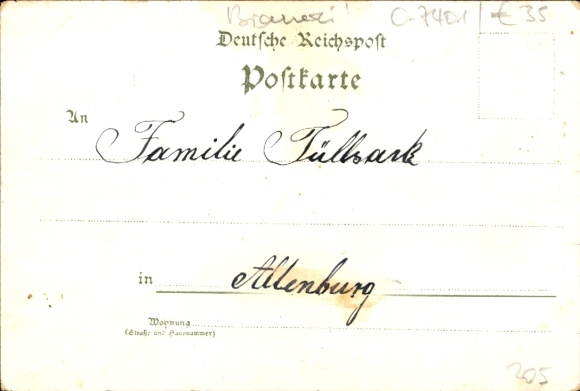 Brauerei! O-7401 € 35
Deutsche Reichspost
Postkarte
An Familie Füllsack
in Altenburg
Wohnung
(Straße und Hausnummer)
205